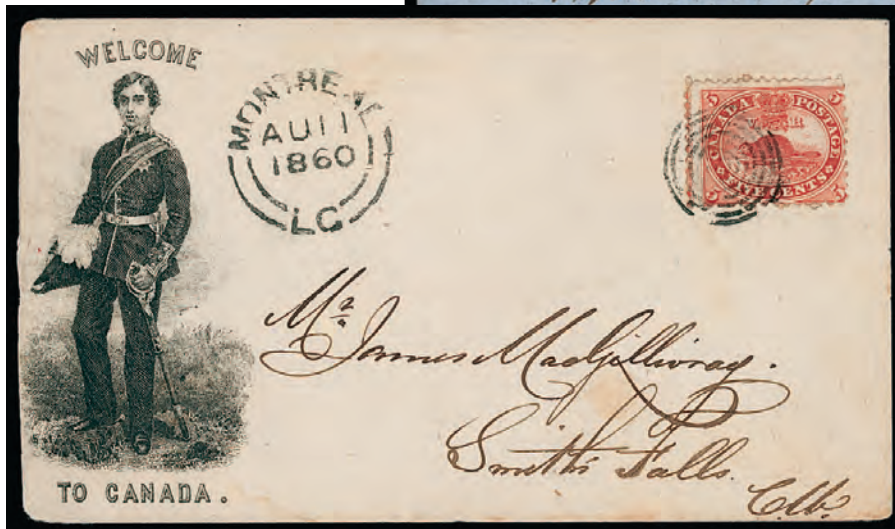 WELCOME
TO CANADA.
MONTREAL
AU 11
1860
LC
5 CANADA POSTAGE 5
V R
5 FIVE CENTS 5
Mr.
James MacGillivray.
Smith's Falls.
C.W.